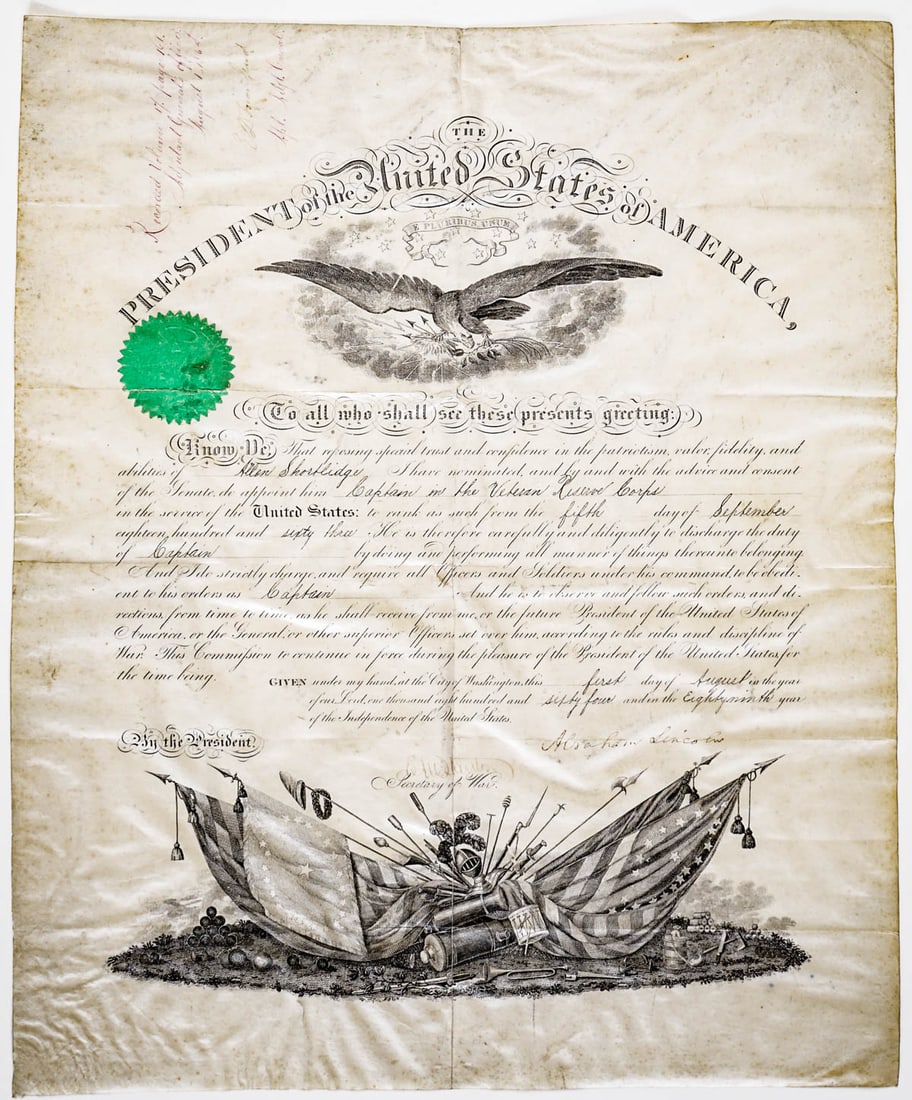 THE
PRESIDENT of the United States of AMERICA,
E PLURIBUS UNUM
To all who shall see these presents greeting:
Know Ye, That reposing special trust and confidence in the patriotism, valor, fidelity, and
abilities of Allen Shortledge, I have nominated, and by and with the advice and consent
of the Senate, do appoint him Captain in the Veteran Reserve Corps
in the service of the United States: to rank as such from the fifth day of September
eighteen hundred and sixty three. He is therefore carefully and diligently to discharge the duty
of Captain by doing and performing all manner of things thereunto belonging.
And I do strictly charge, and require all Officers and Soldiers under his command, to be obedi-
ent to his orders as Captain And he is to observe and follow such orders, and di-
rections, from time to time, as he shall receive from me, or the future President of the United States of
America, or the General, or other superior Officers set over him, according to the rules and discipline of
War. This Commission to continue in force during the pleasure of the President of the United States, for
the time being.
GIVEN under my hand, at the City of Washington, this first day of August in the year
of our Lord, one thousand eight hundred and sixty four and in the Eighty ninth year
of the Independence of the United States.
By the President:
Abraham Lincoln
Secretary of War.